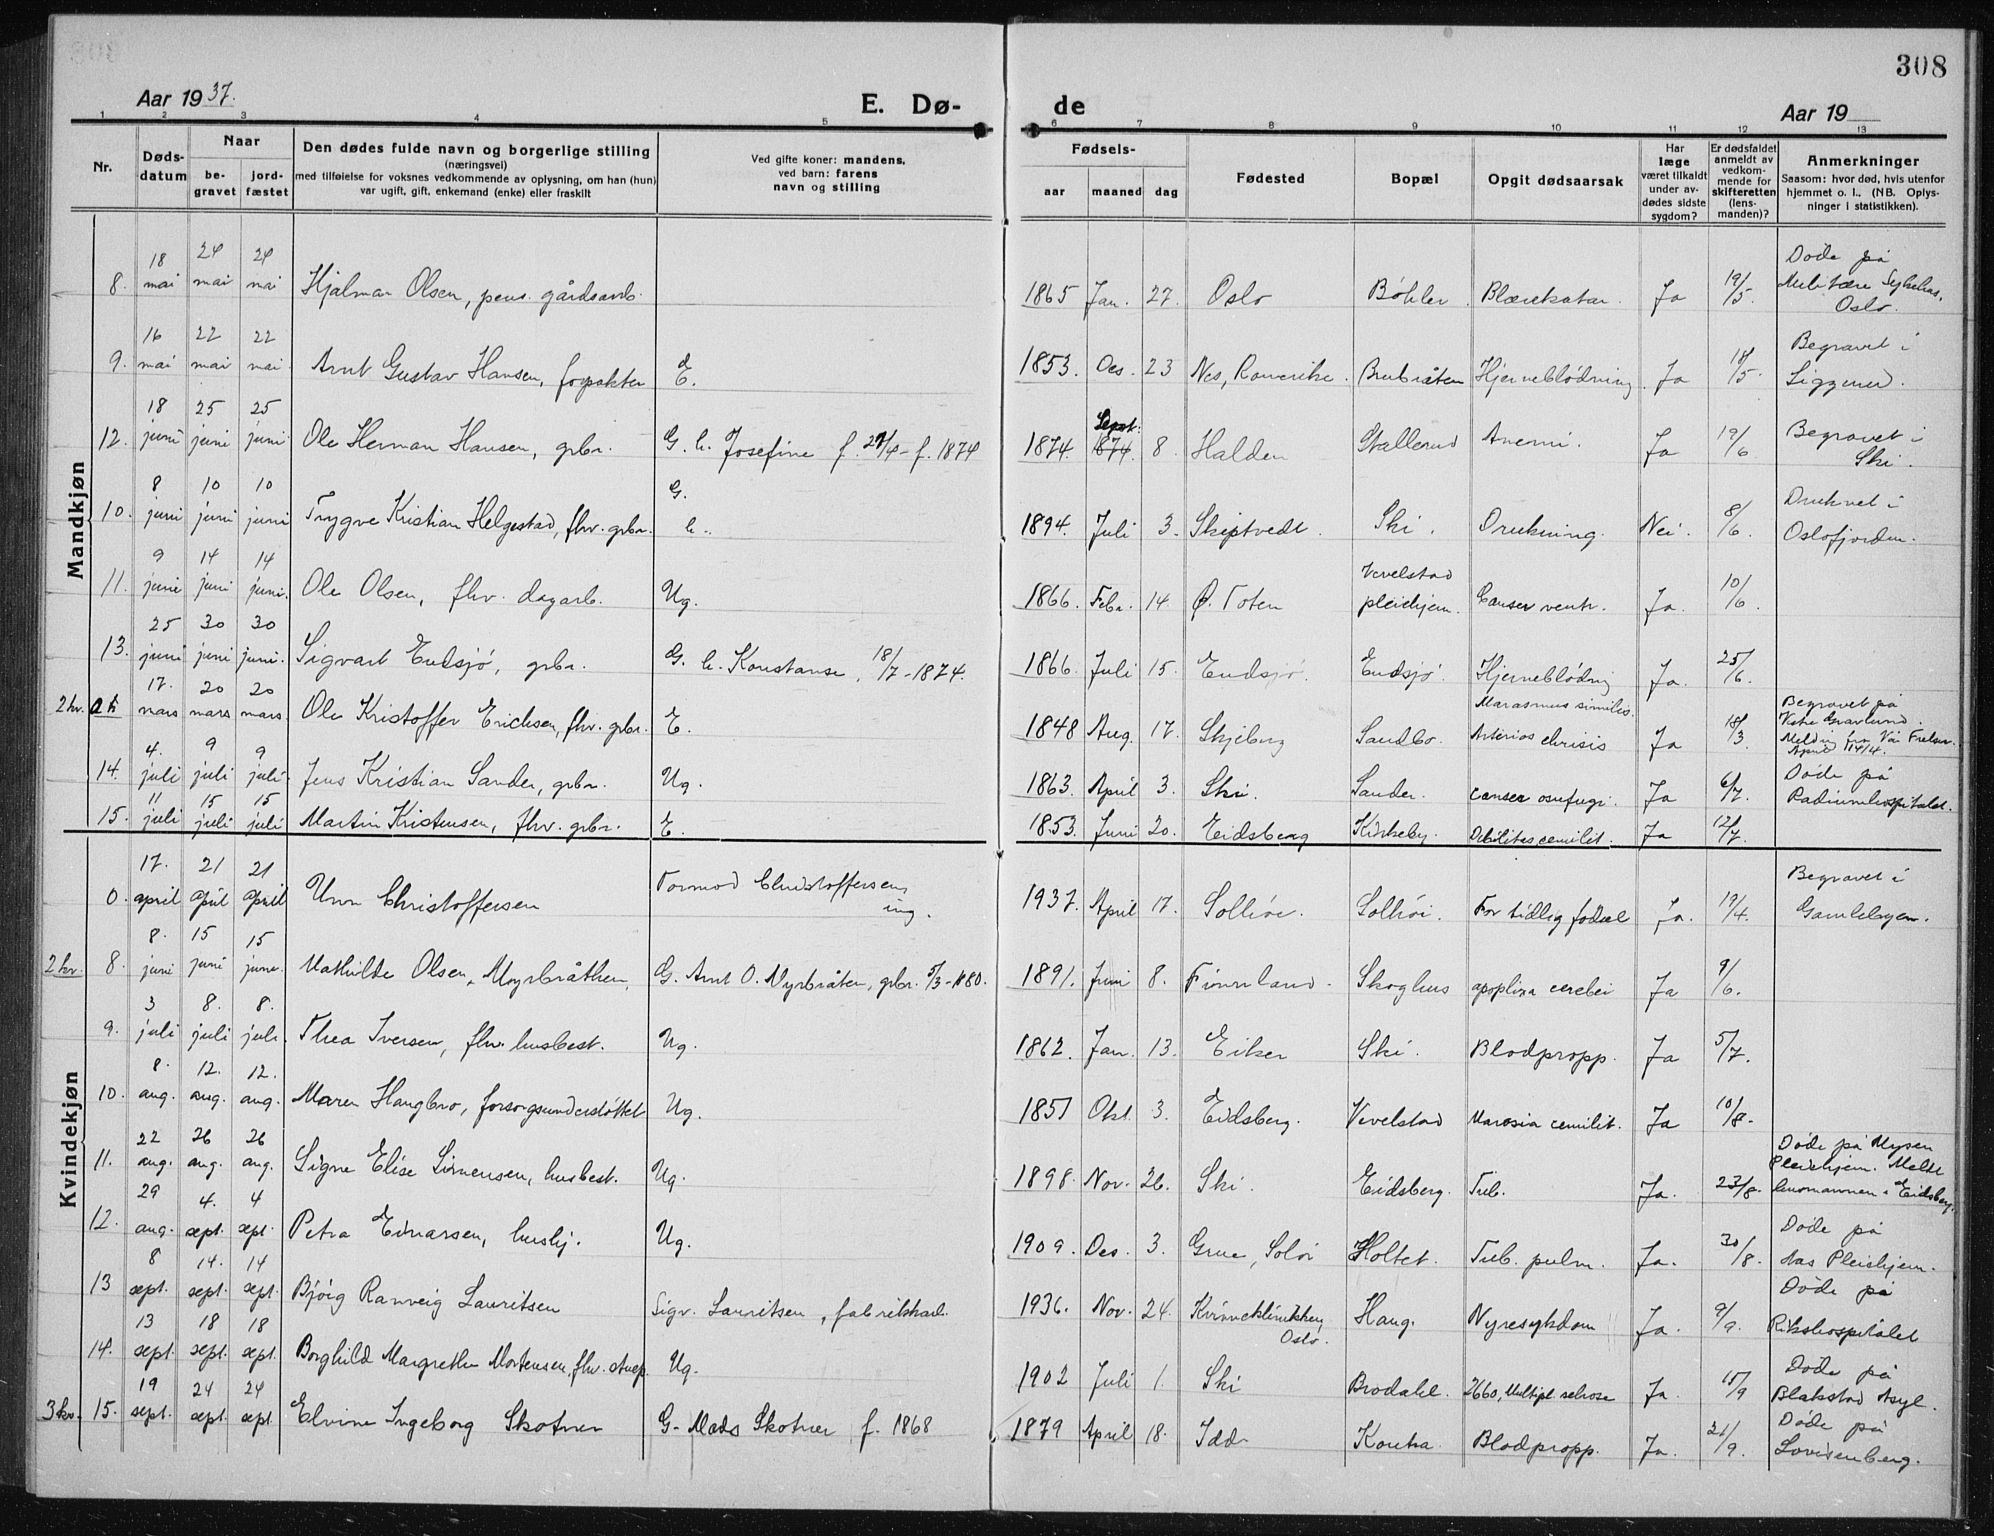 308
Aar 1937.
E. Dø-
de
Aar 19
1 2 3 4 5 6 7 8 9 10 11 12 13
Nr.
Døds-
datum
Naar
be-
gravet
jord-
fæstet
Den dødes fulde navn og borgerlige stilling
(næringsvei)
med tilføielse for voksnes vedkommende av oplysning, om han (hun)
var ugift, gift, enkemand (enke) eller fraskilt
Ved gifte koner: mandens,
ved barn: farens
navn og stilling
Fødsels-
aar maaned dag
Fødested
Bopæl
Opgit dødsaarsak
Har
læge
været tilkaldt
under av-
dødes sidste
sygdom?
Er dødsfaldet
anmeldt av
vedkom-
mende for
skifteretten
(lens-
manden)?
Anmerkninger
Saasom: hvor død, hvis utenfor
hjemmet o. l., (NB. Oplys-
ninger i statistikken).
Mandkjøn
8. 18 mai 24 mai 24 mai Hjalmar Olsen, pens. gårdsarb. 1865 Jan. 27. Oslo Bøhler Blærekatar. Ja 19/5. Døde på
Militære Sykehus,
Oslo.
9. 16 mai 22 mai 22 mai Arnt Gustav Hansen, forpakter E. 1853. Des. 23 Nes, Romerike. Brubråten Hjerneblødning. Ja 18/5. Begravet i
Siggerud.
12. 18 juni 25 juni 25 juni Ole Herman Hansen, grbr. G. m. Josefine f. 27/4 - f. 1874 1874. Sept. 8. Halden Stallerud Anemi. Ja 19/6 Begravet i
Ski.
10. 8 juni 10 juni 10 juni Trygve Kristian Helgestad, fhv. grbr. G. 1894. Juli 3. Skiptvedt. Ski. Drukning. Nei. 8/6. Druknet i
Oslofjorden.
11. 9 juni 14 juni 14 juni. Ole Olsen, fhv. dagarb. Ug. 1866. Febr. 14. Ø. Toten Vevelstad
pleiehjem. Canser ventr. Ja. 10/6.
13. 25 juni 30 juni 30 juni. Sigvart Endsjø, grbr. G. m. Konstanse, 18/7-1874. 1866. Juli 15. Endsjø. Endsjø. Hjerneblødning Ja. 25/6.
2 kv. 17. mars 20 mars 20 mars. Ole Kristoffer Erichsen, fhv. grbr. E. 1848 Aug. 17. Skjeberg Sandbo. Marasmus similis.
Arterios clrisis Ja 18/3. Begravet på
Vestre Gravlund.
Melding fra Vår Frelser.
April 14/4.
14. 4. juli 9 juli 9 juli Jens Kristian Sander, grbr. Ug. 1863. April 3. Ski. Sander. canser osufugi. Ja 6/7. Døde på
Radiumhospitalet.
15. 11 juli 15 juli 15 juli Martin Kristensen, fhv. grbr. E. 1853. Juni 20. Eidsberg Kirkeby. Debilitas cemilit. Ja 12/7.
Kvindekjøn
0. 17. april 21 april 21 april Unn Christoffersen Tormod Christoffersen,
ing. 1937. April 17. Solhøi. Solhøi. For tidlig fødsel Ja. 19/4. Begravet i
Gamlebyen.
2 kv. 8. 8. juni 15 juni 15 juni. Mathilde Olsen, Myrbråthen, G. Arnt O. Myrbråten, grbr. 5/3-1880. 1891. Juni 8. Finnland. Skoghus apoplixa cerebei Ja 9/6.
9. 3 juli 8. juli 8. juli. Thea Iversen, fhv. husbest. Ug. 1862. Jan. 13. Eiker Ski. Blodpropp. Ja 5/7.
10. 8. aug. 12. aug. 12. aug. Maren Haugbro, forsorgsunderstøttet Ug. 1851 Okt. 3. Eidsberg. Vevelstad Marosia cemilit. Ja 10/8.
11. 22 aug. 26 aug. 26 aug. Signe Elise Simensen, husbest. Ug. 1898. Nov. 26. Ski. Eidsberg. Tub. Ja. 23/8. Døde på Mysen
Pleiehjem. Meldt
lensmannen i Eidsberg.
12. 29 aug. 4. sept. 4 sept. Petra Einarsen, hushj. Ug. 1909. Des. 3. Grue, Solør Holtet. Tub. pulm. Ja. 30/8. Døde på
Aas Pleiehjem.
13 8 sept. 14. sept. 14 sept. Bjørg Ranveig Lauritsen Sigv. Lauritsen, fabrikkarb. 1936. Nov. 24. Kvinneklinikken,
Oslo. Haug. Nyresykdom Ja. 9/9. Døde på
Rikshospitalet
14. 13 sept. 18 sept. 18 sept. Borghild Margrethe Mortensen, fhv. Ug. 1902 Juli 1. Ski Brodahl. 2660, Multipl. selrose Ja. 15/9 Døde på
Blakstad Asyl.
3 kv. 15. 19 sept. 24 sept. 24 sept. Elvine Ingeborg Skotner G. Mads Skotner f. 1868 1879 April 18. Idd Kontra. Blodpropp. Ja. 21/9. Døde på
Lovisenberg.